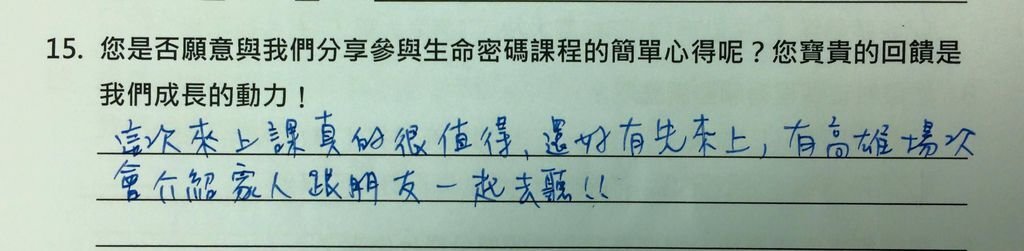 15. 您是否願意與我們分享參與生命密碼課程的簡單心得呢？您寶貴的回饋是
我們成長的動力！
這次來上課真的很值得，還好有先來上，有高雄場次
會介紹家人跟朋友一起去聽!!